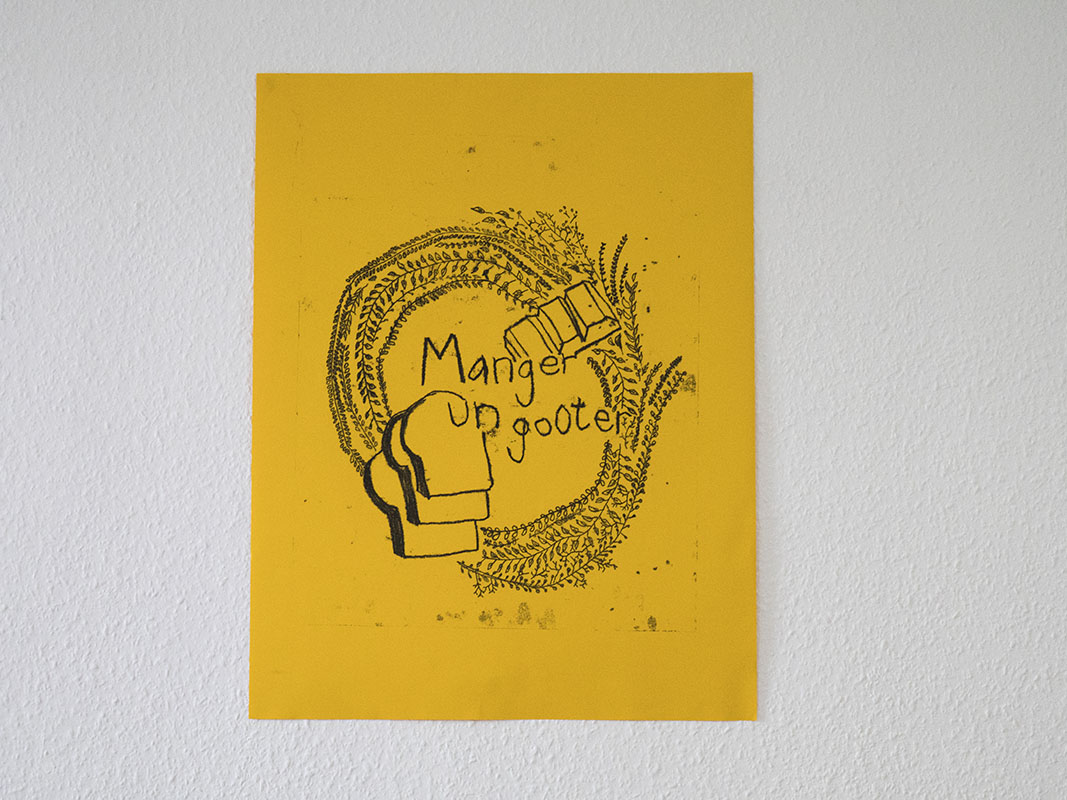 Manger
un gooter